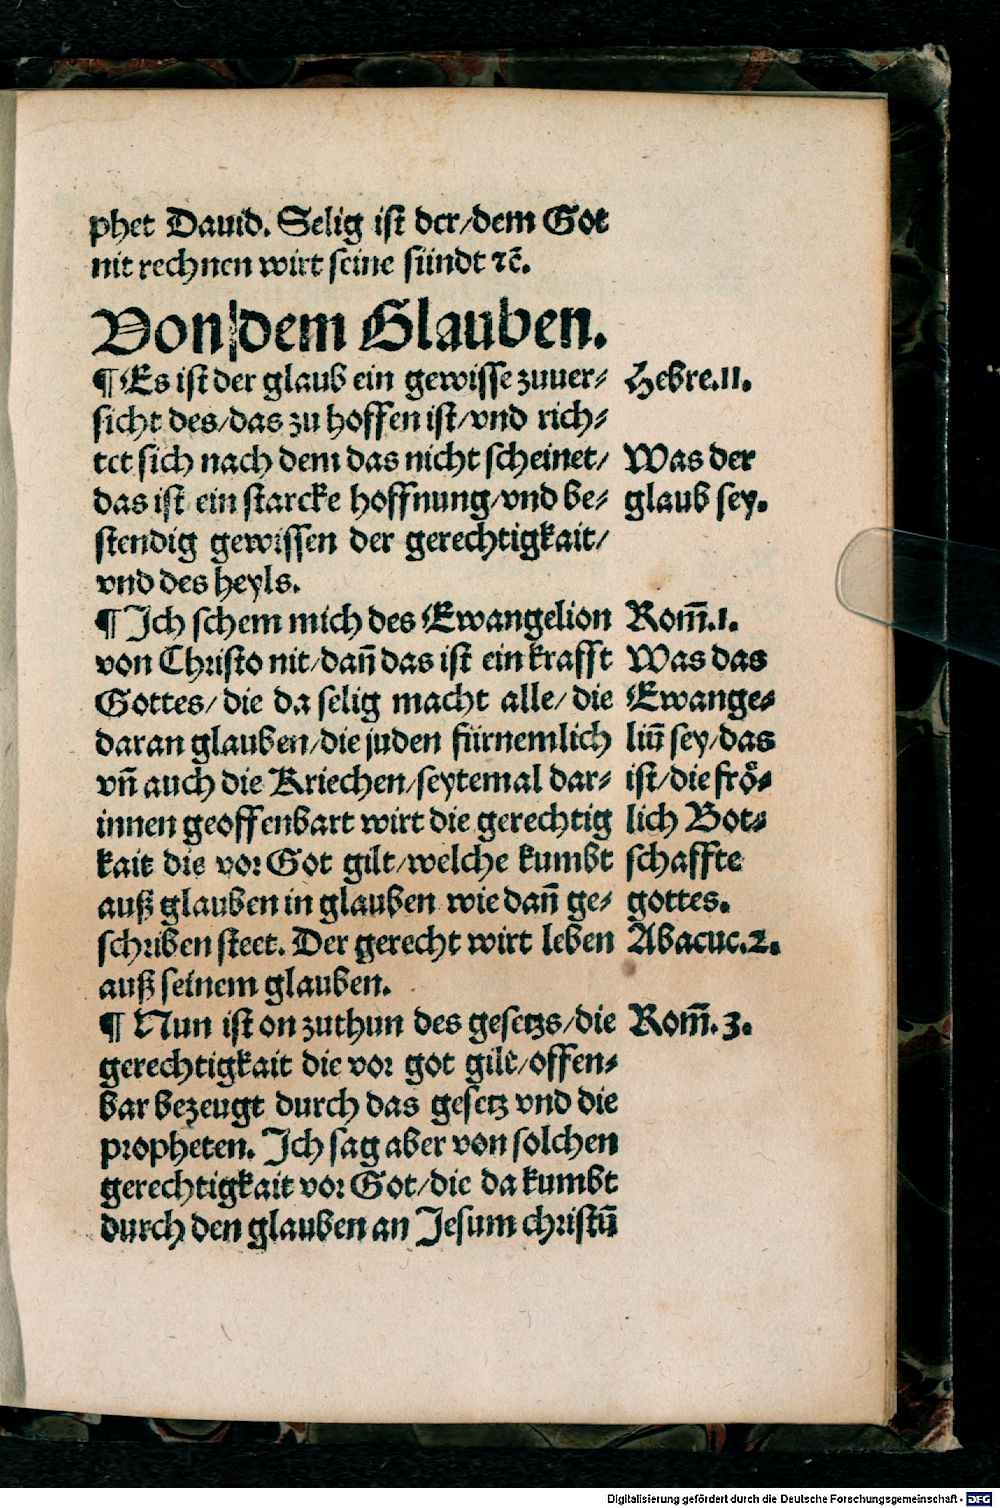 phet Dauid. Selig ist der/dem Got
nit rechnen wirt seine sündt ⁊c̄.
Von dem Glauben.
¶ Es ist der glaub ein gewisse zuuer⸗
sicht des/das zu hoffen ist/vnd rich⸗
tet sich nach dem das nicht scheinet/
das ist ein starcke hoffnung/vnd be⸗
stendig gewissen der gerechtigkait/
vnd des heyls.
¶ Ich schem mich des Ewangelion
von Christo nit/dan̄ das ist ein krafft
Gottes/ die da selig macht alle/ die
daran glauben/die juden fürnemlich
vn̄ auch die Kriechen/seytemal dar⸗
innen geoffenbart wirt die gerechtig
kait die vor Got gilt/welche kumbt
auß glauben in glauben wie dan̄ ge⸗
schriben steet. Der gerecht wirt leben
auß seinem glauben.
¶ Nun ist on zuthun des gesetzs/die
gerechtigkait die vor got gilt/offen⸗
bar bezeugt durch das gesetz vnd die
propheten. Ich sag aber von solchen
gerechtigkait vor Got/die da kumbt
durch den glauben an Jesum christū
Hebre.11.
Was der
glaub sey.
Rom̄.1.
Was das
Ewange⸗
liū sey/das
ist/die frö⸗
lich Bot⸗
schaffte
gottes.
Abacuc.2.
Rom̄.3.
Digitalisierung gefördert durch die Deutsche Forschungsgemeinschaft - DFG